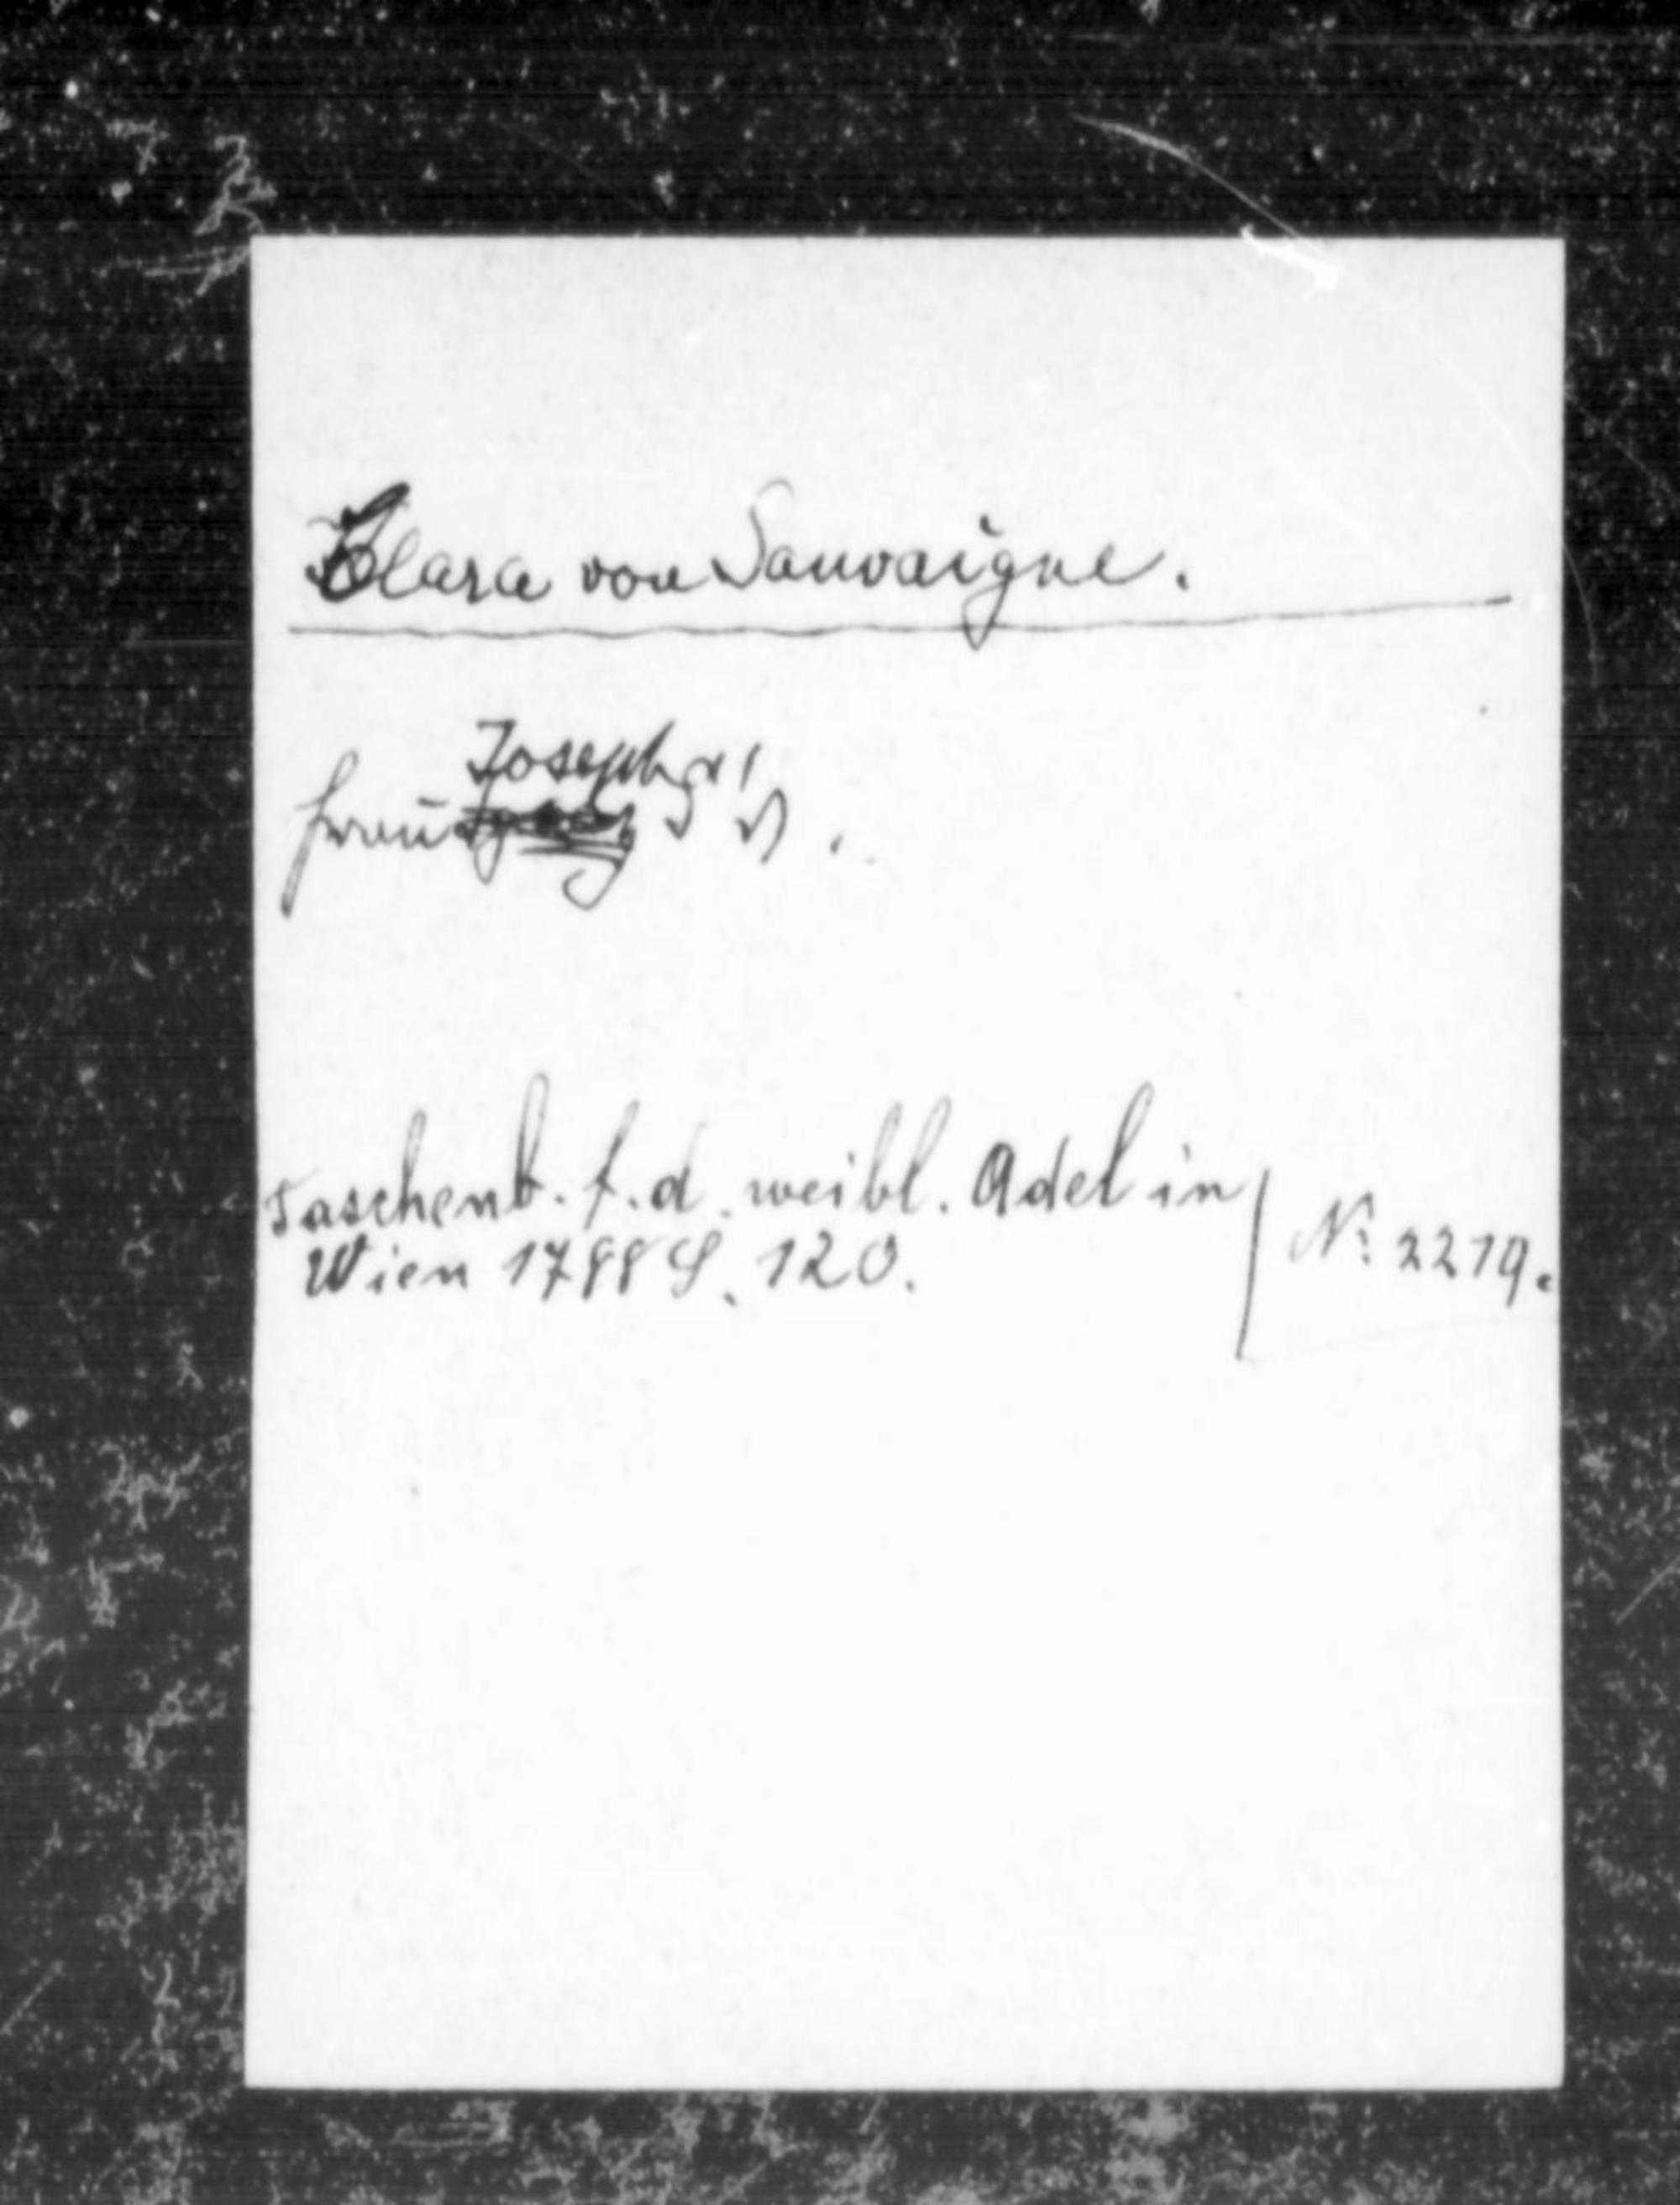 Clara von Sauvaigne.
Joseph
Frau
Taschenb. f. d. weibl. Adel in
Wien 1788 S. 120.
No: 2219.